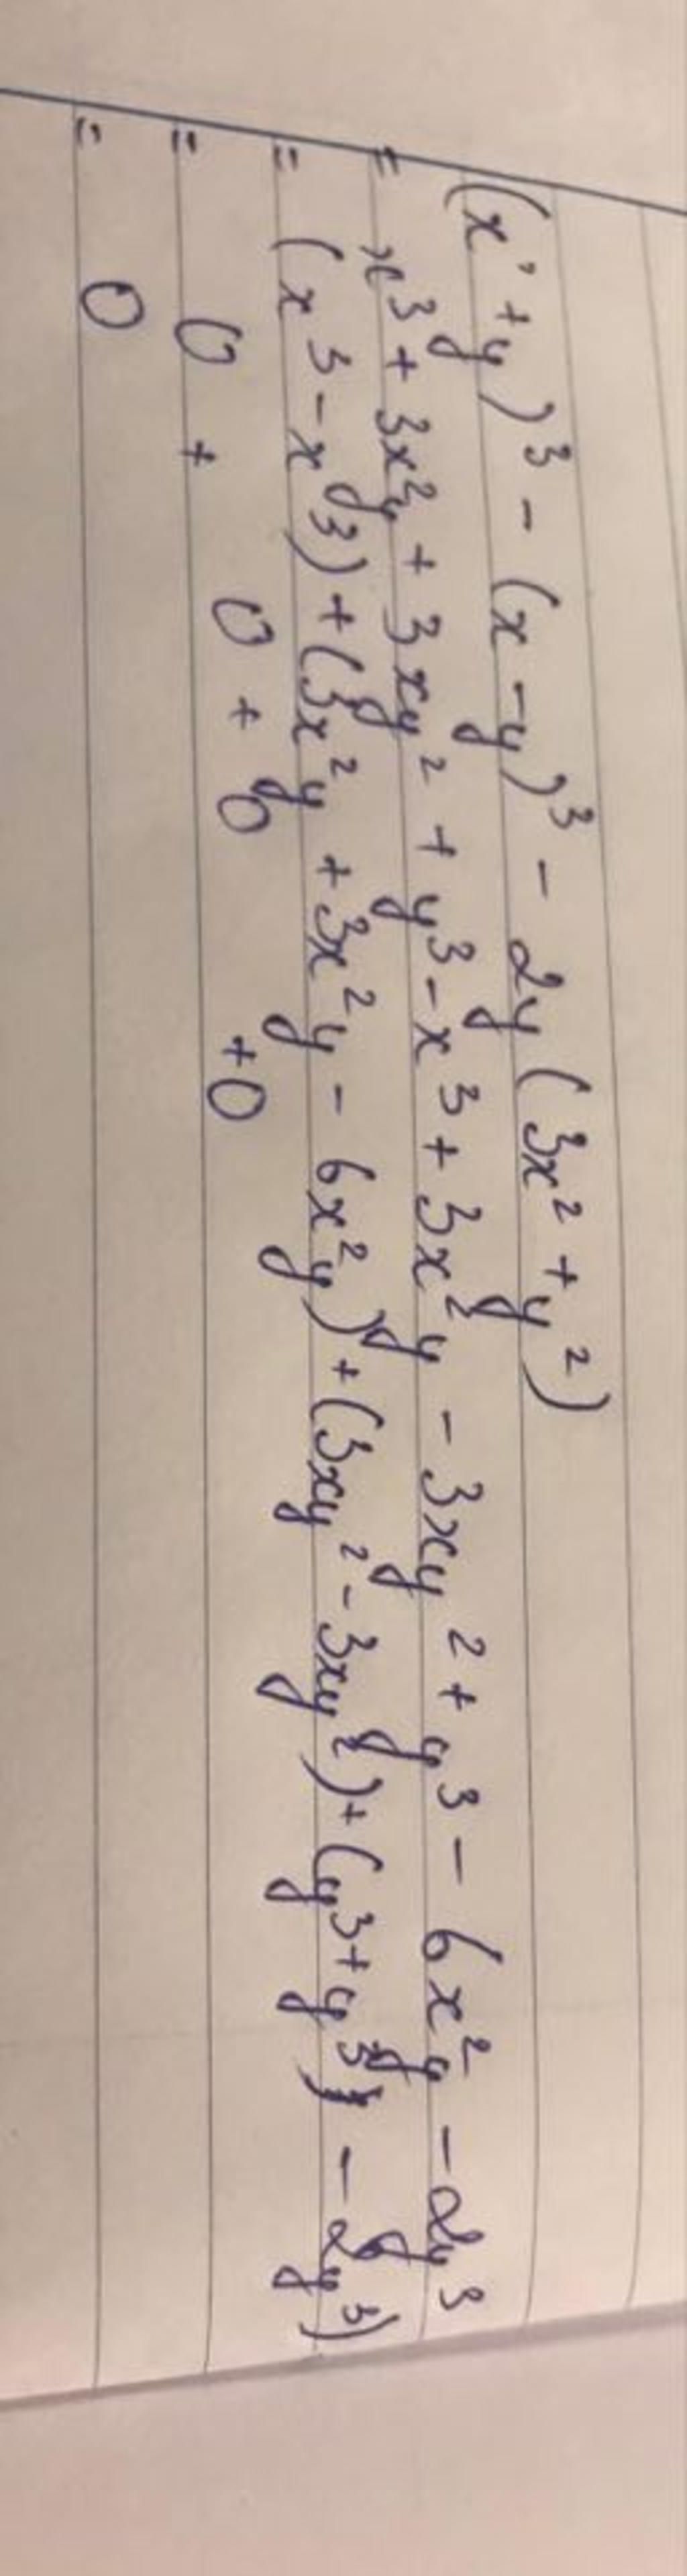 (x + y)³ - (x - y)³ - 2y (3x² + y²)
= x³ + 3x²y + 3xy² + y³ - x³ + 3x²y - 3xy² + y³ - 6x²y - 2y³
= (x³ - x³) + (3x²y + 3x²y - 6x²y) + (3xy² - 3xy²) + (y³ + y³ - 2y³)
= 0 + 0 + 0 + 0
= 0